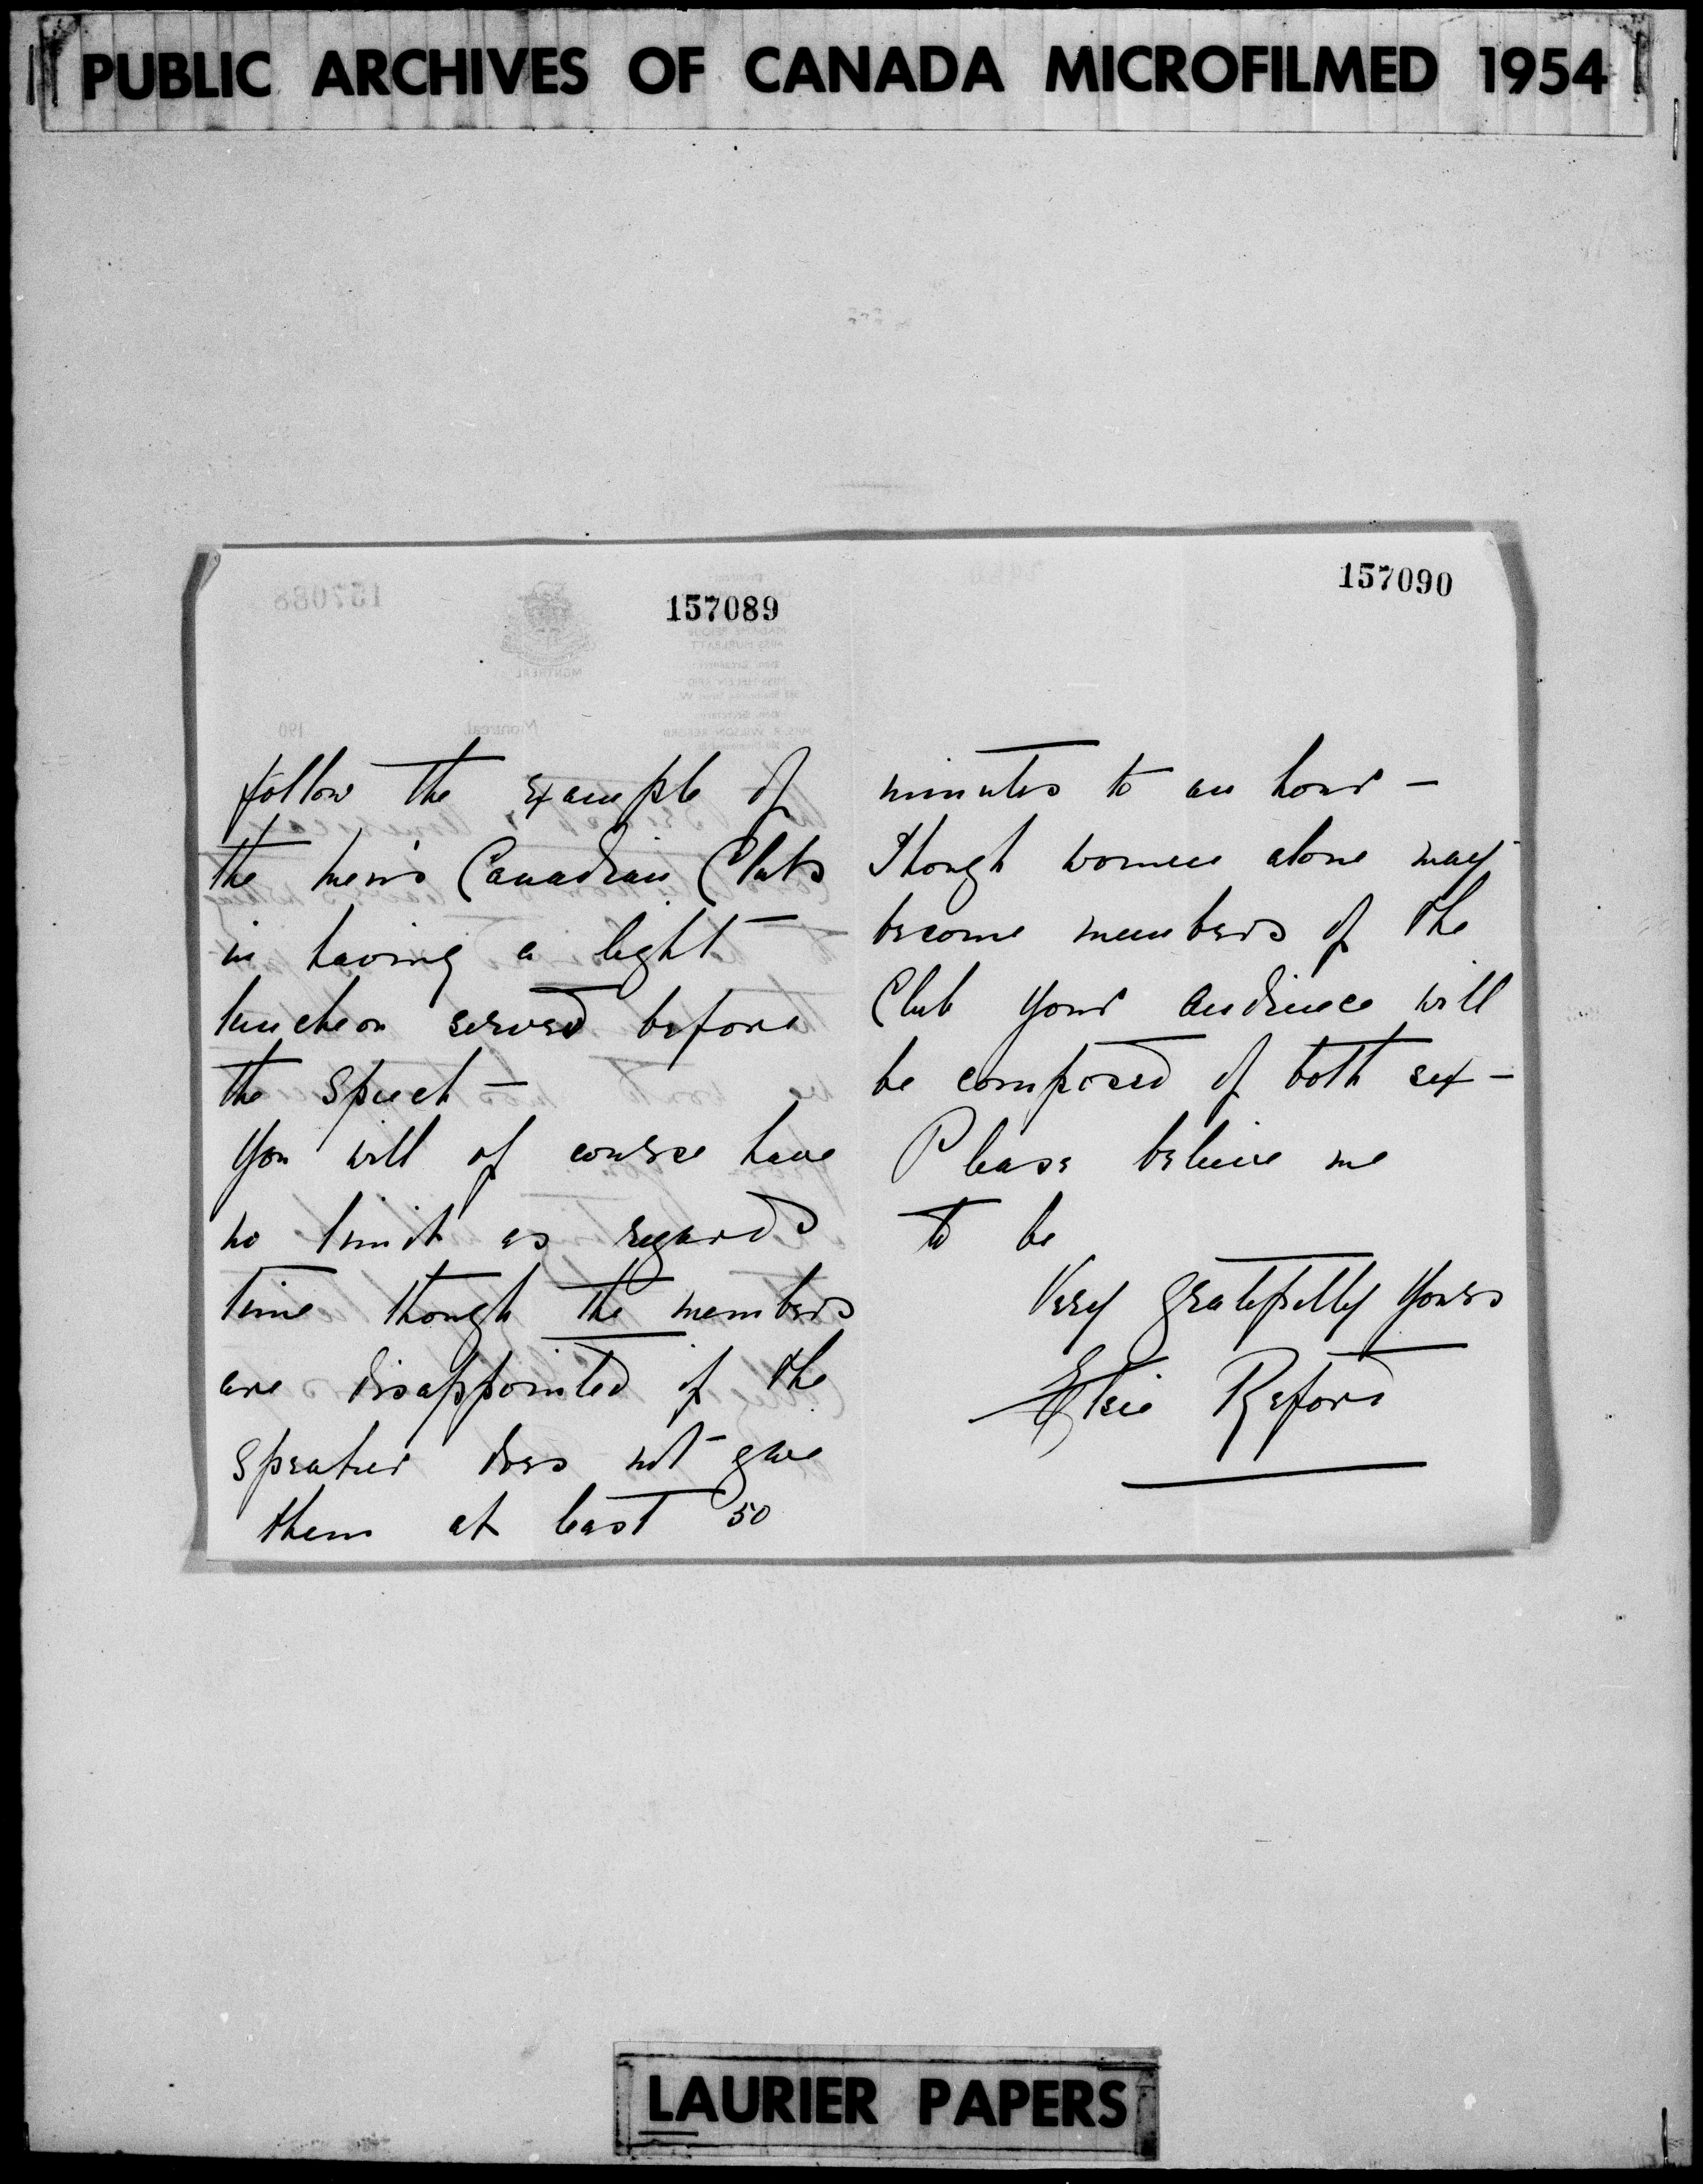 PUBLIC ARCHIVES OF CANADA MICROFILMED 1954
157089
follow the example of
the men's Canadian Clubs
in having a light
luncheon served before
the speech –
You will of course have
no limit as regards
time though the members
are disappointed if the
speaker does not give
them at least 50
157090
minutes to an hour –
Though women alone may
become members of the
Club your audience will
be composed of both sex –
Please believe me
to be
Very gratefully yours
Elsie Reford
LAURIER PAPERS